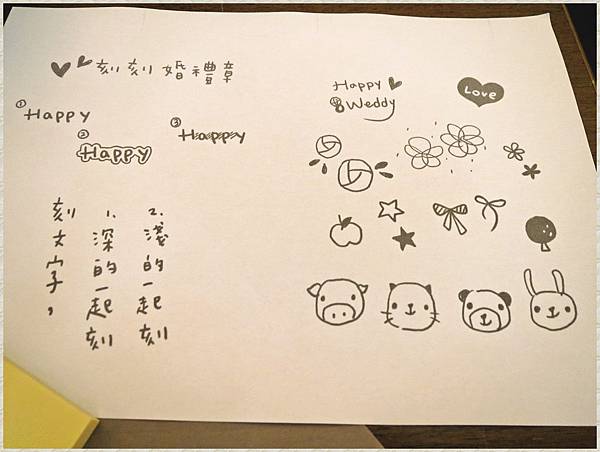 刻刻婚禮章
① Happy
② Happy
③ Happy
刻文字,
1.深的一起刻
2.淺的一起刻
Happy
Weddy
Love